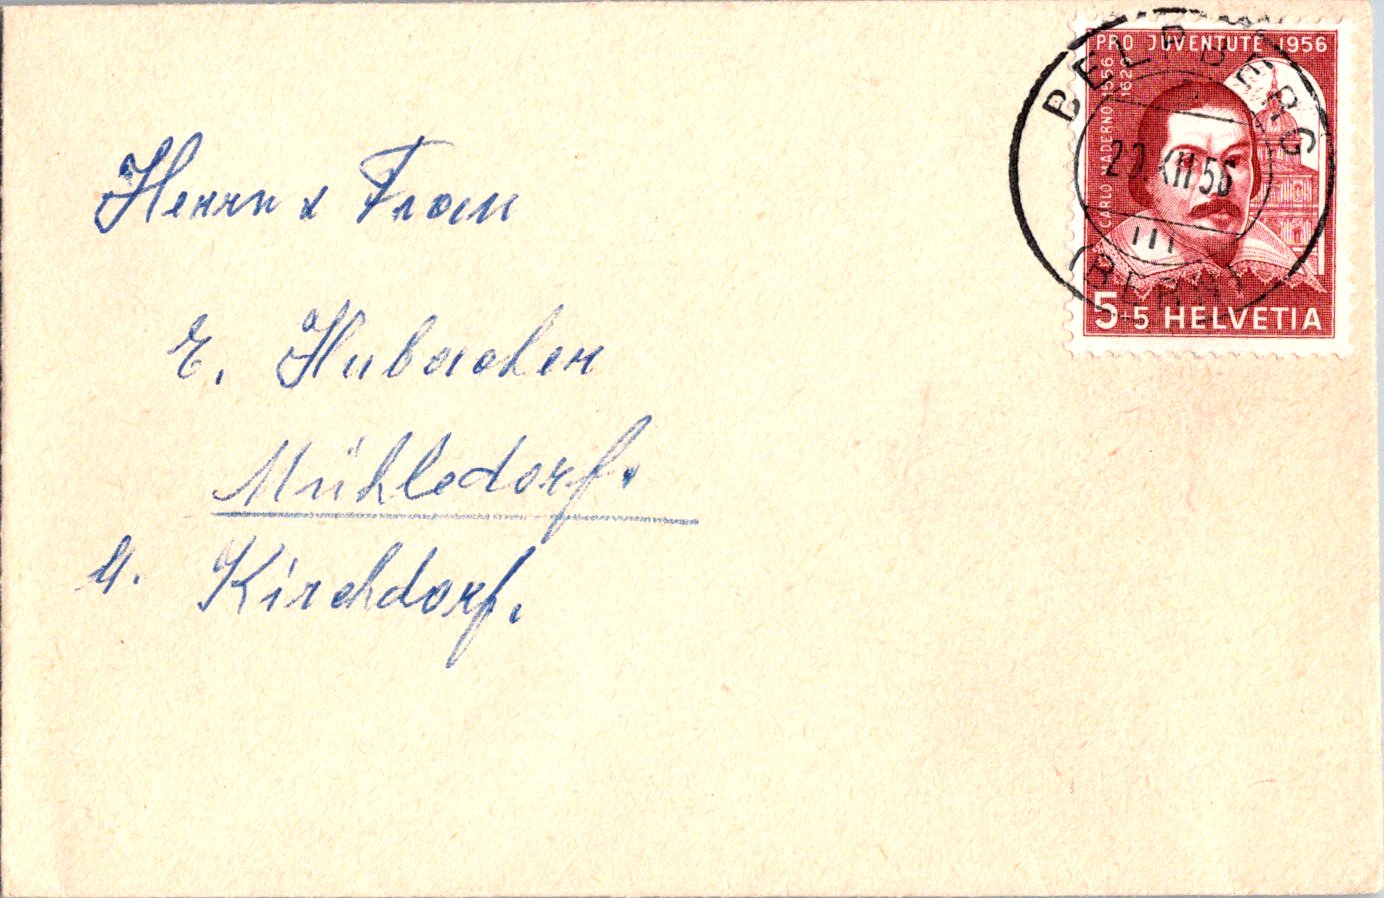 Herrn & Frau
E. Hubacher
Mühledorf.
b. Kirchdorf.
PRO JUVENTUTE 1956
CARLO MADERNO 1556
1629
5+5 HELVETIA
BELPBERG
20.XII 56
(BERN)